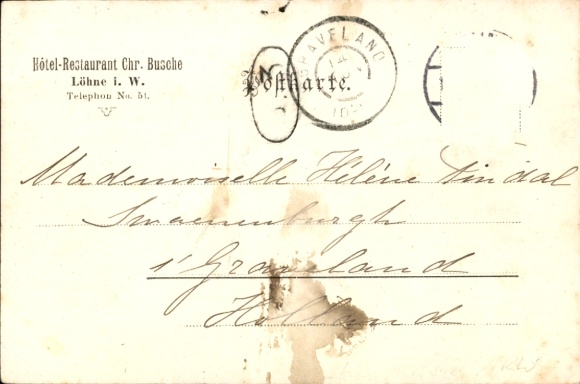 Hôtel-Restaurant Chr. Busche
Löhne i. W.
Telephon No. 51.
Postkarte.
GRAVELAND
Mademoiselle Hélène Dindal
Swaenenburgh
s'Graveland
Holland